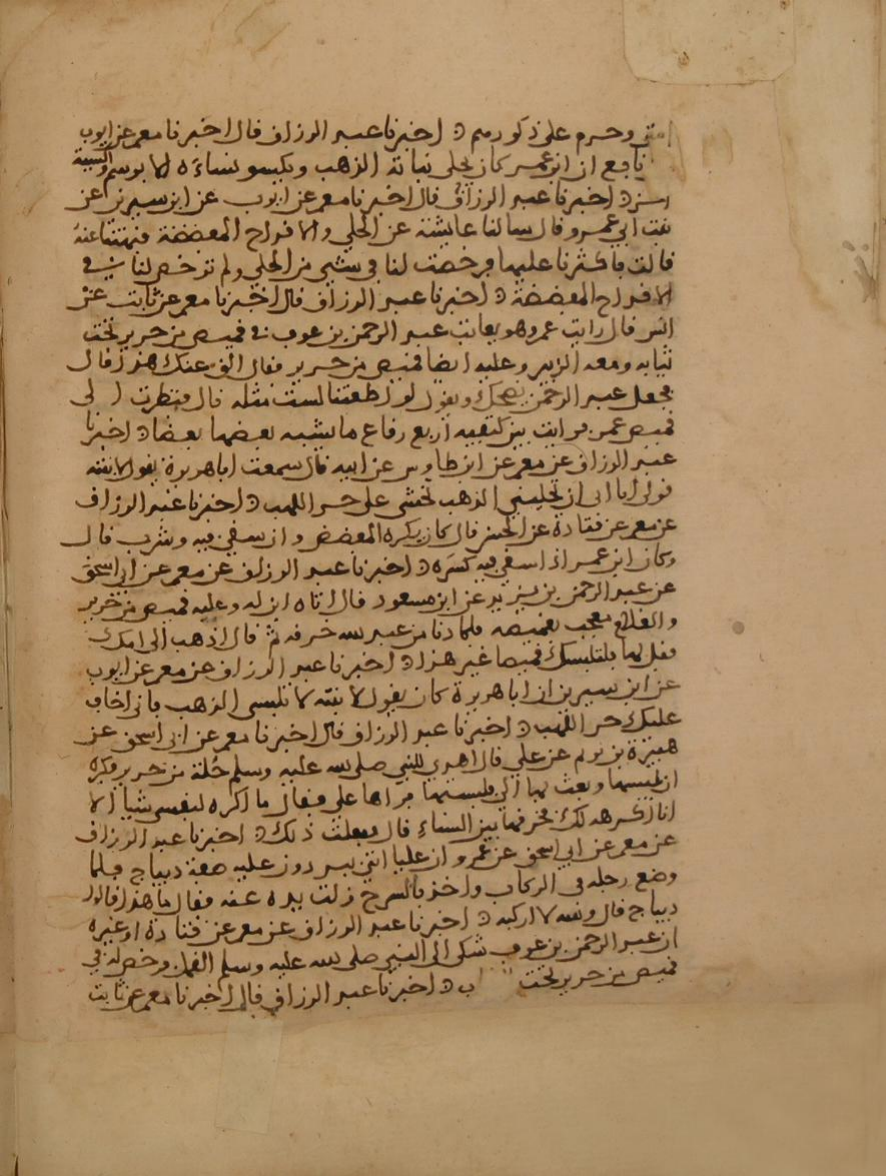 امتي وحرم على ذكورهم ه اخبرنا عبد الرزاق قال اخبرنا معمر عن ايوب
نافع ان ابن عمر كان يحلي بناته الذهب ويكسو نساءه الا بريسم
اخبرنا عبد الرزاق قال اخبرنا معمر عن ايوب عن ابن سيرين عن
بنت ابي عمرو قال سالنا عايشة عن الحلي والاقداح المفضضة فنهتنا عنه
قالت فاكثرنا عليها فرخصت لنا في شيء من الحلي ولم ترخص لنا في
الاقداح المفضضة ه اخبرنا عبد الرزاق قال اخبرنا معمر عن ثابت عن
انس قال رايت عمر وهو يعاتب عبد الرحمن بن عوف في قميص من حرير تحت
ثيابه ومعه الزبير وعليه ايضا قميص من حرير فقال الق عنك هذا قال
فجعل عبد الرحمن يضحك ويقول لو اطعتنا لبست مثله قال فنظرت الى
قميص عمر فرايت بين كتفيه اربع رقاع ما يشبه بعضها بعضا ه اخبرنا
عبد الرزاق عن معمر عن ابن طاوس عن ابيه قال سمعت ابا هريرة يقول لابنته
قولي ابا ابي ان يحليني الذهب يخشى علي حر اللهب ه اخبرنا عبد الرزاق
عن معمر عن قتادة عن الحسن قال كان يكره المفضض وان سقي فيه وشرب قال
وكان ابن عمر اذا سقي فيه كسره ه اخبرنا عبد الرزاق عن معمر عن ابي اسحق
عن عبد الرحمن بن يزيد عن ابن مسعود قال اتاه ابن له وعليه قميص من حرير
والغلام معجب بقميصه فلما دنا من عبد الله خرقه ثم قال اذهب الى امك
فقل لها فلتلبسك قميصا غير هذا ه اخبرنا عبد الرزاق عن معمر عن ايوب
عن ابن سيرين ان ابا هريرة كان يقول لابنته لا تلبسي الذهب فاني اخاف
عليك حر اللهب ه اخبرنا عبد الرزاق قال اخبرنا معمر عن ابي اسحق عن
هبيرة بن يريم عن علي قال اهدي للنبي صلى الله عليه وسلم حلة من حرير فكره
ان يلبسها وبعث بها الي فلبستها فراها علي فقال ما اكره لنفسي شيا الا
انا اكرهه لك فخرقها بين النساء قال ففعلت ذلك ه اخبرنا عبد الرزاق
عن معمر عن ابي اسحق عن عمرو ان عليا اتي ببرذون عليه صفة ديباج فلما
وضع رجله في الركاب واخذ بالسرج زلت يده عنه فقال ما هذا قالوا
ديباج قال والله لا اركبه ه اخبرنا عبد الرزاق عن معمر عن قتادة او غيره
ان عبد الرحمن بن عوف شكى الى النبي صلى الله عليه وسلم القمل فرخص له في
قميص من حرير تحت ه اخبرنا عبد الرزاق قال اخبرنا معمر عن ثابت